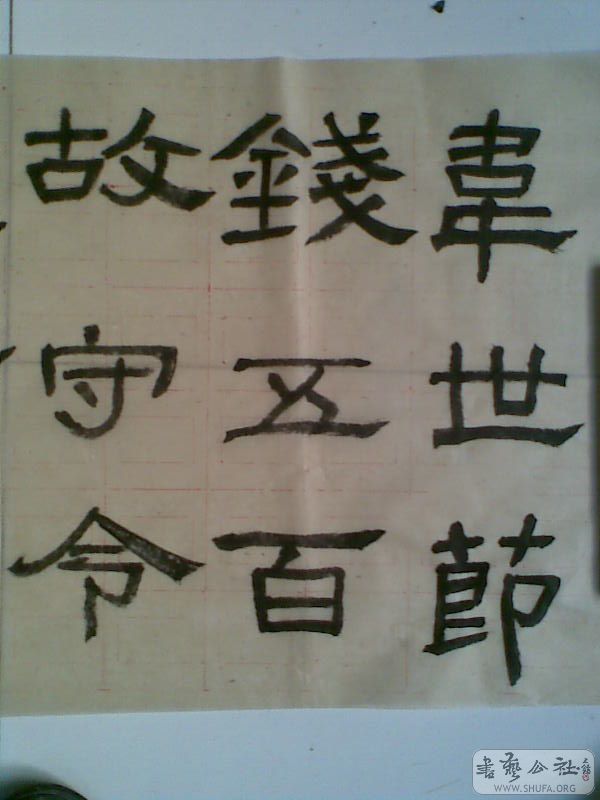 韋世節
錢五百
故守令
書藝公社
WWW.SHUFA.ORG